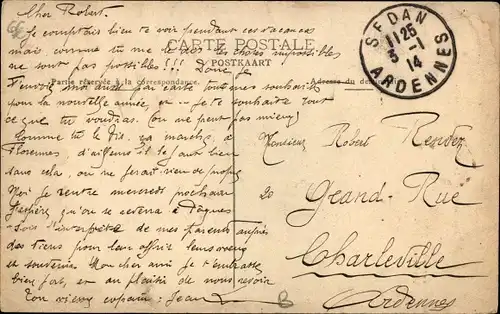 Cher Robert.
Je comptais bien te voir pendant ces vacances
mais comme tu me le dis les choses impossibles
ne sont pas possibles!!!
CARTE POSTALE
POSTKAART
Partie réservée à la correspondance.
Adresse du
SEDAN
11 25
5 -1
14
ARDENNES
J'envoie moi aussi par carte tous mes souhaits
pour la nouvelle année, et je te souhaite tout
ce que tu voudras. (on ne peut pas mieux)
Comme tu le dis, ça marche, à
Florennes, d'ailleurs il le faut bien
sans cela, on ne ferait rien de propre
Moi je rentre mercredi prochain
J'espère qu'on se reverra à Pâques
Sois l'interprète de mes parents auprès
des tiens pour leur offrir leurs vœux
et souvenirs. Mon cher ami je t'embrasse
bien fort, et au plaisir de nous revoir
Ton vieux copain: Jean
Monsieur Robert
20 Grand-Rue
Charleville
Ardennes